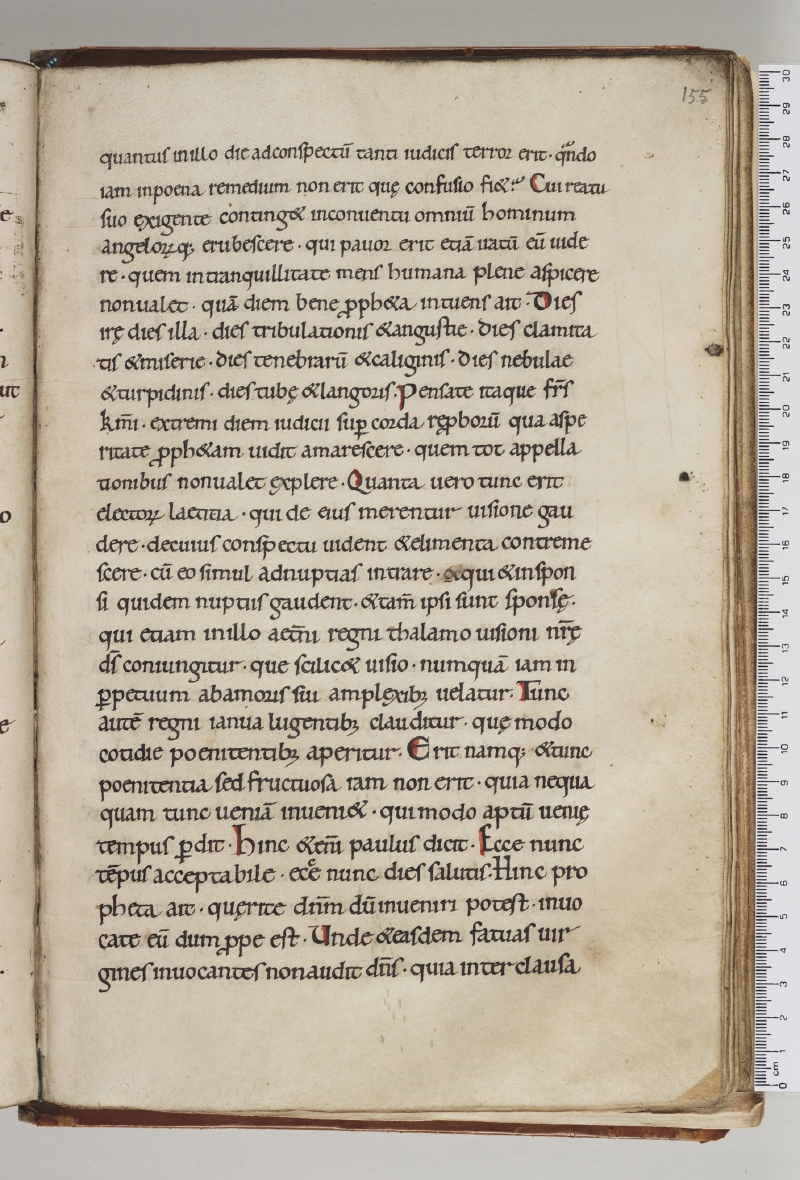 155
quantuſ in illo die ad conſpectū tanti iudiciſ terror erit · qn̄do
iam in poena remedium non erit quę confuſio fi& · Cui reatu
ſuo exigente conting& in conuentu omniū hominum
angeloꝝq; erubeſcere · qui pauor erit etiā iratū eū uide
re · quem in tranquillitate menſ humana plene aſpicere
non ualet · quā diem bene ꝓph&a intuenſ ait · Dieſ
irę dieſ illa · dieſ tribulationiſ &anguſtie · dieſ clamita
tiſ &miſerie · dieſ tenebrarū &caliginiſ · dieſ nebulae
&turpidiniſ · dieſ tubę &langoriſ · Penſate itaque fr̄ſ
km̄i · extremi diem iudicii ſuꝑ corda reꝓborū qua aſpe
ritate ꝓph&am uidit amareſcere · quem tot appella
tionibuſ non ualet explere · Quanta uero tunc erit
electoꝝ laetitia · qui de eiuſ merentur uiſione gau
dere · de cuiuſ conſpectu uident &elimenta contreme
ſcere · cū eo ſimul ad nuptiaſ intrare · &qui &in ſpon
ſi quidem nuptiiſ gaudent · &tam̄ ipſi ſunt ſponſę ·
qui etiam in illo aet̄ni regni thalamo uiſioni nr̄ę
dſ̄ coniungitur · que ſcilic& uiſio · numquā iam in
ꝑpetuum ab amoriſ ſui amplexibꝫ uelatur · Tunc
autē regni ianua lugentibꝫ clauditur · quę modo
cotidie poenitentibꝫ aperitur · Erit namq; &tunc
poenitentia ſed fructuoſa iam non erit · quia nequa
quam tunc ueniā inueni& · qui modo aptū uenię
tempuſ ꝑdit · Hinc &eni̅ pauluſ dicit · Ecce nunc
tēpuſ acceptabile · ecce nunc dieſ ſalutiſ · Hinc pro
pheta ait · quęrite dn̄m dū inueniri poteſt · inuo
cate eū dum ꝓpe eſt · Unde &eaſdem fatuaſ uir
gineſ inuocanteſ non audit dn̄ſ · quia inter clauſa